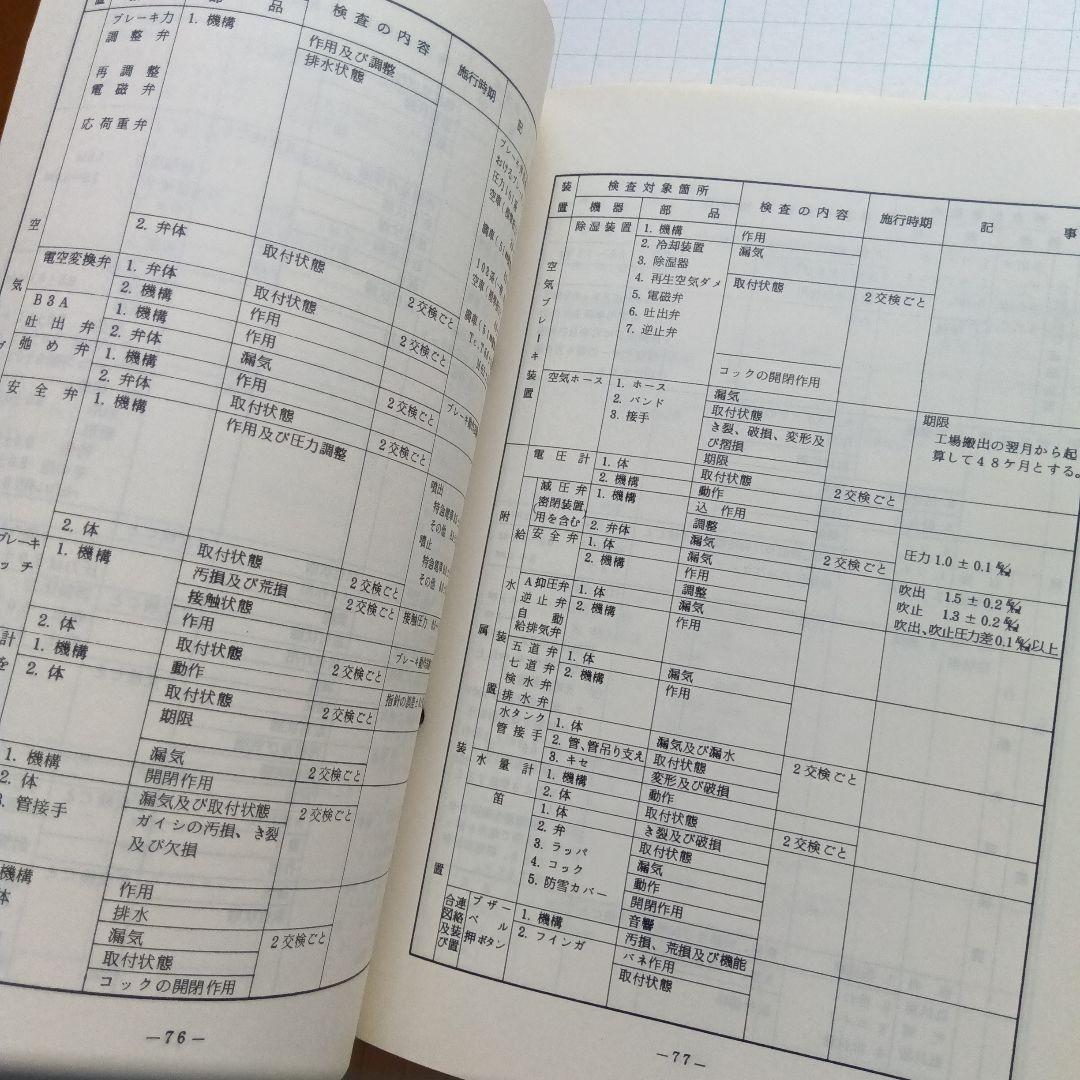 装置
部品
検査の内容
施行時期
記
ブレーキ力
調整弁
再調整
電磁弁
応荷重弁
1. 機構
作用及び調整
排水状態
2. 弁体
取付状態
空
気
電空変換弁
1. 弁体
2. 機構
取付状態
作用
2交検ごと
B3A
吐出弁
1. 機構
2. 弁体
作用
漏気
2交検ごと
弛め弁
1. 機構
2. 弁体
作用
取付状態
2交検ごと
安全弁
1. 機構
作用及び圧力調整
2交検ごと
噴出
特急電車
その他
噴止
特急電車
その他
2. 体
取付状態
2交検ごと
ブレーキ
ッチ
1. 機構
汚損及び荒損
接触状態
作用
2交検ごと
接触圧力
2. 体
取付状態
計
1. 機構
動作
2交検ごと
2. 体
取付状態
期限
2交検ごと
1. 機構
2. 体
3. 管接手
漏気
開閉作用
漏気及び取付状態
ガイシの汚損、き裂
及び欠損
2交検ごと
2交検ごと
機構
体
作用
排水
漏気
取付状態
コックの開閉作用
2交検ごと
—76—
装置
検査対象箇所
機器
部品
検査の内容
施行時期
記事
空気ブレーキ装置
除湿装置
1. 機構
2. 冷却装置
3. 除湿器
4. 再生空気ダメ
5. 電磁弁
6. 吐出弁
7. 逆止弁
作用
漏気
取付状態
コックの開閉作用
2交検ごと
空気ホース
1. ホース
2. バンド
3. 接手
漏気
取付状態
き裂、破損、変形及
び摺損
期限
期限
工場搬出の翌月から起
算して48ケ月とする。
附属装置
給水装置
電圧計
1. 体
2. 機構
取付状態
動作
2交検ごと
減圧弁
(密閉装置
用を含む)
1. 機構
2. 弁体
込 作用
調整
漏気
圧力 1.0 ± 0.1
安全弁
1. 体
2. 機構
漏気
作用
調整
2交検ごと
吹出 1.5 ± 0.2
吹止 1.3 ± 0.2
吹出、吹止圧力差0.1 以上
A抑圧弁
逆止弁
自動
給排気弁
1. 体
2. 機構
漏気
作用
五道弁
七道弁
検水弁
排水弁
1. 体
2. 機構
漏気
作用
水タンク
管接手
1. 体
2. 管、管吊り支え
3. キセ
漏気及び漏水
取付状態
変形及び破損
2交検ごと
水量計
1. 機構
2. 体
動作
取付状態
笛
1. 体
2. 弁
3. ラッパ
4. コック
5. 防雪カバー
き裂及び破損
取付状態
漏気
動作
開閉作用
音響
2交検ごと
連絡装置
合図及び
ブザー
ベル
押ボタン
1. 機構
2. フインガ
汚損、荒損及び機能
バネ作用
取付状態
—77—